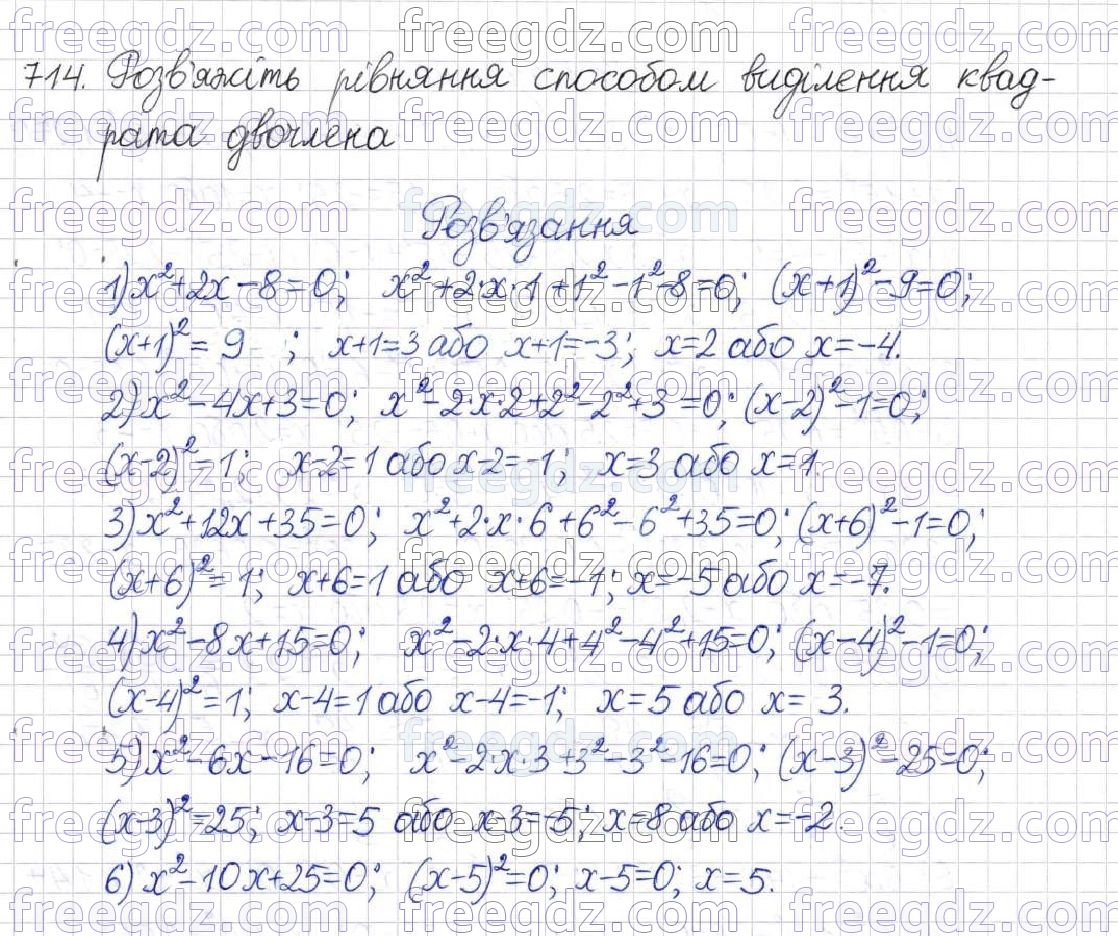 714. Розв'яжіть рівняння способом виділення квад-
рата двочлена
Розв'язання
1) x²+2x-8=0; x²+2·x·1+1²-1²-8=0; (x+1)²-9=0;
(x+1)²= 9 ; x+1=3 або x+1=-3; x=2 або x=-4.
2) x²-4x+3=0; x²-2·x·2+2²-2²+3=0; (x-2)²-1=0;
(x-2)²=1; x-2=1 або x-2=-1; x=3 або x=1.
3) x²+12x+35=0; x²+2·x·6+6²-6²+35=0; (x+6)²-1=0;
(x+6)²=1; x+6=1 або x+6=-1; x=-5 або x=-7.
4) x²-8x+15=0; x²-2·x·4+4²-4²+15=0; (x-4)²-1=0;
(x-4)²=1; x-4=1 або x-4=-1; x=5 або x= 3.
5) x²-6x-16=0; x²-2·x·3+3²-3²-16=0; (x-3)²-25=0;
(x-3)²=25; x-3=5 або x-3=-5; x=8 або x=-2.
6) x²-10x+25=0; (x-5)²=0; x-5=0; x=5.
freegdz.com